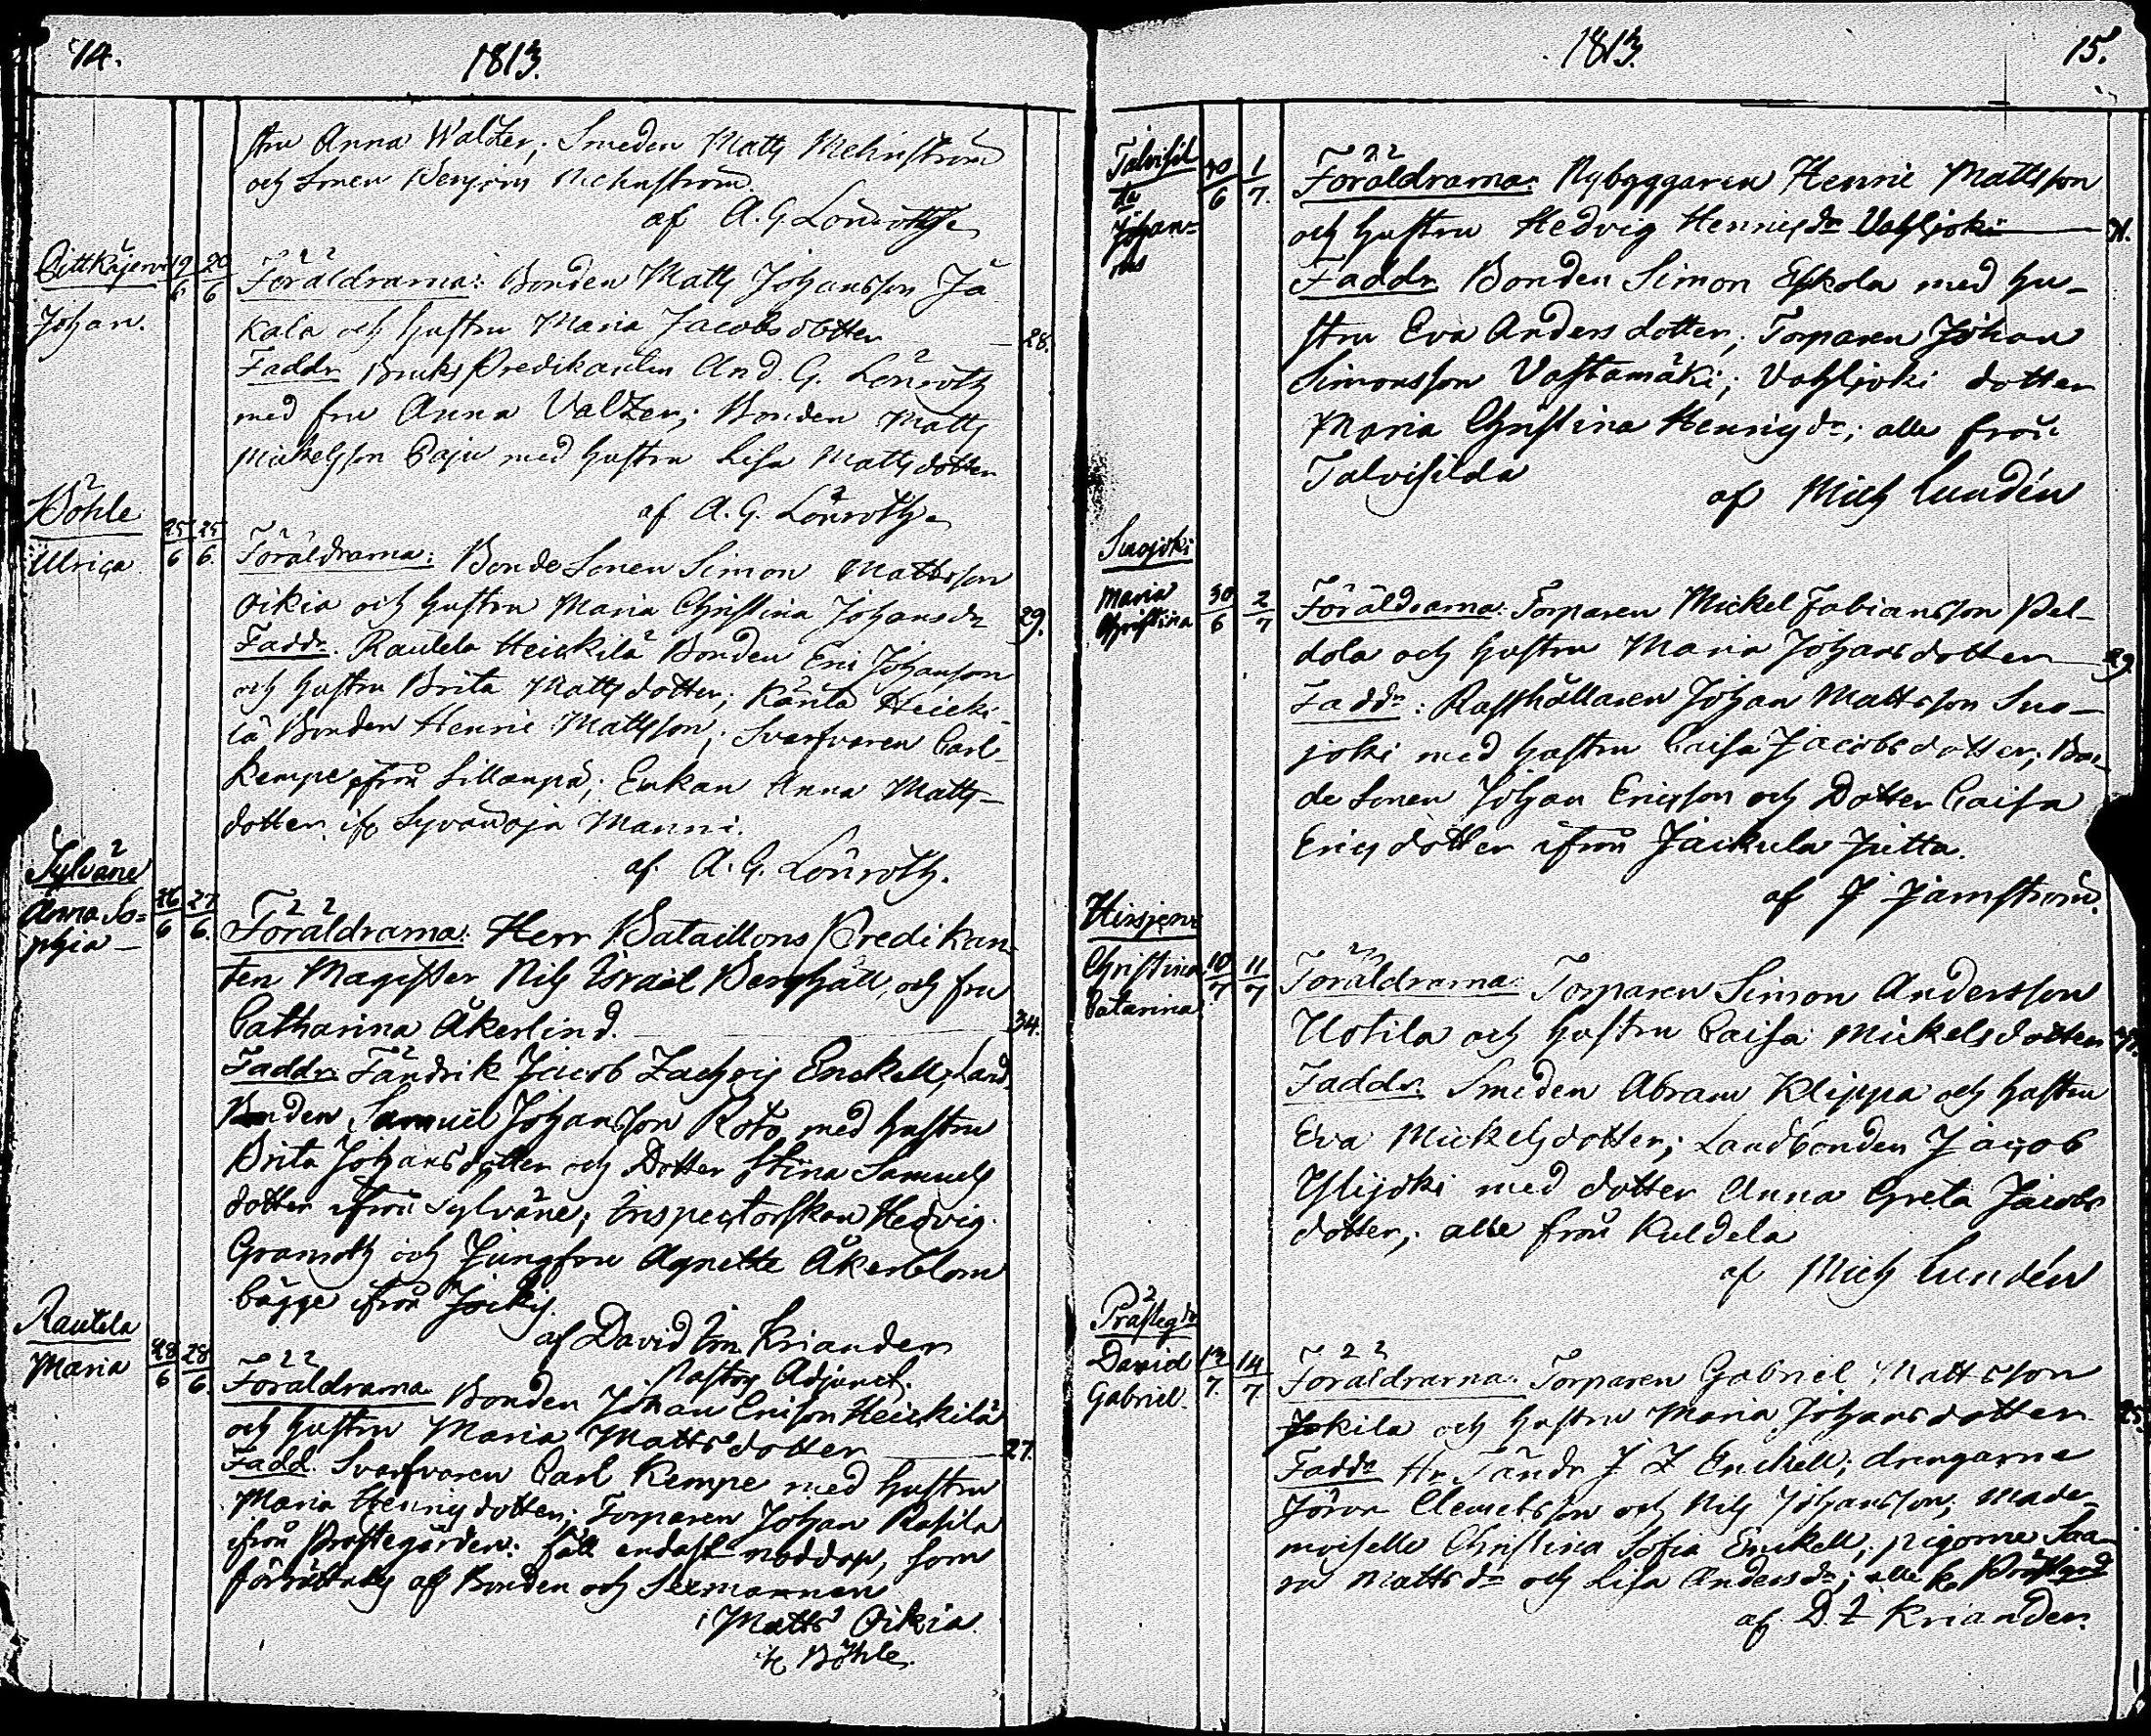 14.
1813.
stru Anna Walzer; Smeden Matts Mehnström
och Sonen Benjam Mehnström.
af A. G. Lönroth
Pittkäjervi 19/6 20/6
Johan.
Föräldrarna: Bonden Matts Johansson Ja
kala och hustru Maria Jacobsdotter 28.
Faddr Bruks Predikanten And. G. Lönroth
med fru Anna Valzer; Bonden Matts
Mickelsson Paju med hustru Lisa Mattsdotter
af A. G. Lönroth
Böhle
Ulrica 25/6 25/6.
Föräldrarna: Bonde Sonen Simon Mattsson
Oikia och hustru Maria Christina Johansdr 29.
Faddr. Rautela Heickilä Bonden Eric Johansson
och hustru Brita Mattsdotter; Känta Heicki-
lä Bonden Henric Mattsson; Svarfvaren Carl
Kempe ifrån Sillanpä; Enkan Anna Matts-
dotter, ifr Syvänoja Manni.
af A. G. Lönroth.
Sylväne
Anna So= 26/6 27/6.
phia
Föräldrarna: Herr Bataillons Predikan-
ten Magister Nils Israel Berghäll, och fru
Catharina Åkerlind. 34.
Faddr Fändrik Jacob Zachris Enckell, Land
Bonden Samuel Johansson Roto med hustru
Brita Johansdotter och Dotter Stina Samuels
dotter ifrån Sylväne; Inspectorskan Hedvig
Granroth och Jungfru Agnetta Åkerblom
bägge ifrån Jockis.
af David Im Kriander
Pastors Adjunct.
Rautela
Maria 28/6 28/6
Föräldrarna Bonden Johan Ericsson Heickilä
och hustru Maria Mattsdotter 27.
Fadd. Svarfvaren Carl Kempe med hustru
Maria Henricsdotter; Torparen Johan Rasila
ifrån Prästegården: fått endast nöddop, som
förrättats af Bonden och Sexmannen
Matts Oikia
fr Böhle.
1813.
15.
Talvisil
da 30/6 1/7.
Johan=
nes
Föräldrarna: Nybyggaren Henric Mattsson
och hustru Hedvig Henricsdr Vahljoki 31.
Faddr Bonden Simon Eskola med hu-
stru Eva Andersdotter; Torparen Johan
Simonsson Vastamäki; Vahljoki dotter
Maria Christina Henricsdr; alla från
Talvisilda
af Mich Lundén
Suojoki
Maria 30/6 2/7
Christina
Föräldrarna: Torparen Mickel Fabiansson Pel-
dola och hustru Maria Johansdotter 29.
Faddr: Rusthållaren Johan Mattsson Suo-
joki med hustru Caisa Jacobsdotter; Bon-
de Sonen Johan Ericsson och Dotter Caisa
Ericsdotter ifrån Jaickula Jutta.
af J Jarnström.
Hirsjervi
Christina 10/7 11/7
Catarina
Föräldrarna: Torparen Simon Andersson
Uotila och hustru Caisa Mickelsdotter
Faddr. Smeden Abram Klippa och hustru
Eva Mickelsdotter; Landbonden Jacob
Ylijoki med dotter Anna Greta Jacobs
dotter; alla från Kuldela
af Mich Lundén
Prästegdn
David 13/7. 14/7
Gabriel.
Föräldrarna: Torparen Gabriel Mattsson
Jokila och hustru Maria Johansdotter 25.
Faddr Hr Fändr J Z Enckell; drengarne
Jöran Clemetsson och Nils Johansson; made-
moiselle Christina Sofia Enckell; pigorne Saa-
ra Mattsdr och Lisa Andersdr; alla fr Prästegrd
af D. I. Kriander.